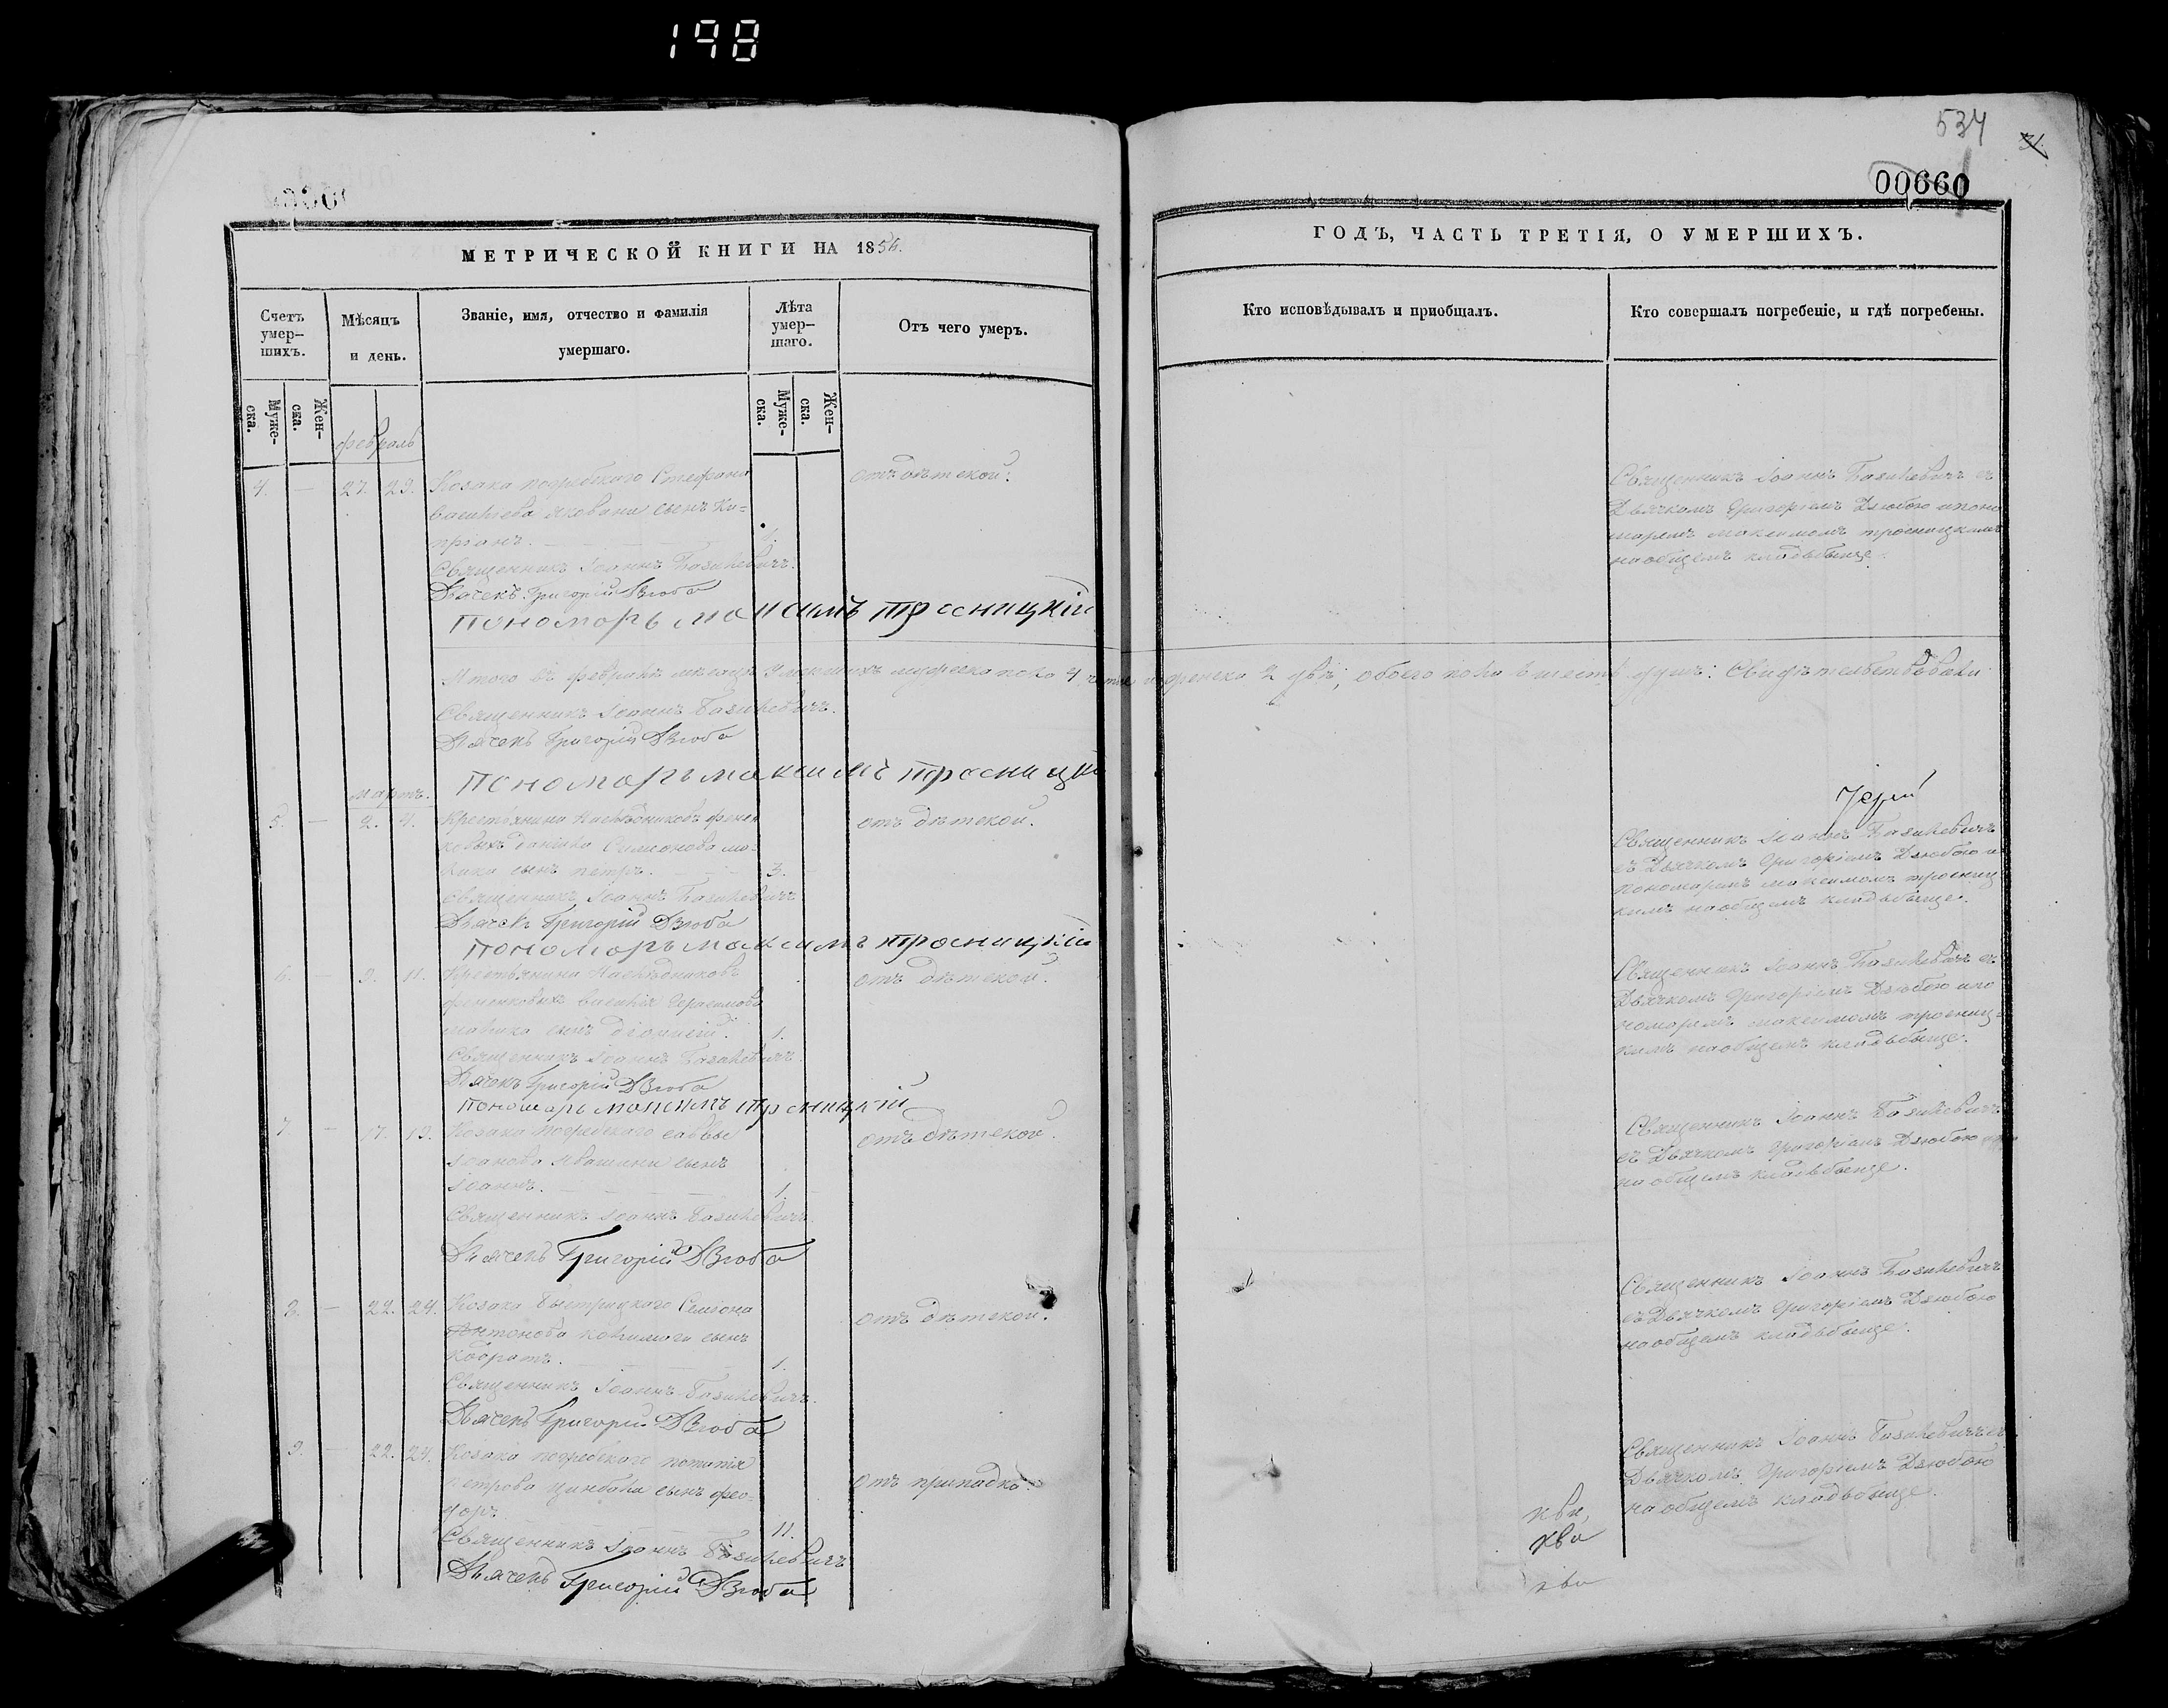 198
534
00660
МЕТРИЧЕСКОЙ КНИГИ НА 1856.
Счетъ умер-шихъ.
Мѣсяцъ и день.
Званіе, имя, отчество и фамилія умершаго.
Лѣта умер-шаго.
Отъ чего умеръ.
Муже-ска.
Жен-ска.
Муже-ска.
Жен-ска.
февраль
4. — 27. 29. Козака погребскаго Стефана отъ дѣтской.
сынъ Ки-
пріанъ. 1.
Священникъ Іоаннъ Базилевичъ.
Дьячекъ Григорій Дзюба
Пономарь Максимъ Тросницкій
Итого въ февралѣ мѣсяцѣ умершихъ мужеска пола 4 женска 2 двѣ, обоего пола шесть душъ: Свидѣтельствовали
Священникъ Іоаннъ Базилевичъ.
Дьячекъ Григорій Дзюба
Пономарь Максимъ Тросницкій
мартъ.
5. — 2. 4. Крестьянина Наслѣдниковъ отъ дѣтской.
Даніила Симеонова
сынъ Петръ. 3.
Священникъ Іоаннъ Базилевичъ
Дьячекъ Григорій Дзюба
Пономарь Максимъ Тросницкій
6. — 9. 11. Крестьянина Наслѣдниковъ отъ дѣтской.
Василія Герасимова
сынъ Діонисій. 1.
Священникъ Іоаннъ Базилевичъ.
Дьячекъ Григорій Дзюба
Пономарь Максимъ Тросницкій
7 — 17. 19. Козака Погребскаго Саввы отъ дѣтской.
Іоанова Ивашини сынъ
Іоаннъ. 1.
Священникъ Іоаннъ Базилевичъ.
Дьячекъ Григорій Дзюба
8. — 22. 24. Козака Быстрицкаго Семіона отъ дѣтской.
Антонова сынъ
Кодратъ. 1.
Священникъ Іоаннъ Базилевичъ.
Дьячекъ Григорій Дзюба
9. — 22. 24. Козака погребскаго отъ припадка.
Петрова сынъ Фео-
доръ 11.
Священникъ Іоаннъ Базилевичъ
Дьячекъ Григорій Дзюба
ГОДЪ, ЧАСТЬ ТРЕТІЯ, О УМЕРШИХЪ.
Кто исповѣдывалъ и пріобщалъ.
Кто совершалъ погребеніе, и гдѣ погребены.
Священникъ Іоаннъ Базилевичъ съ
Дьячкомъ Григоріемъ Дзюбою и поно
маремъ Максимомъ Тросницкимъ
на общемъ кладьбыще.
Іерей
Священникъ Іоаннъ Базилевичъ
съ Дьячкомъ Григоріемъ Дзюбою и
пономаремъ Максимомъ Тросниц
кимъ на общемъ кладьбыще.
Священникъ Іоаннъ Базилевичъ съ
Дьячкомъ Григоріемъ Дзюбою и по
номаремъ Максимомъ Тросниц-
кимъ на общемъ кладьбыще.
Священникъ Іоаннъ Базилевичъ
съ Дьячкомъ Григоріемъ Дзюбою
на общемъ кладьбыще.
Священникъ Іоаннъ Базилевичъ
съ Дьячкомъ Григоріемъ Дзюбою
на общемъ кладьбыще.
Священникъ Іоаннъ Базилевичъ съ
Дьячкомъ Григоріемъ Дзюбою
на общемъ кладьбыще.